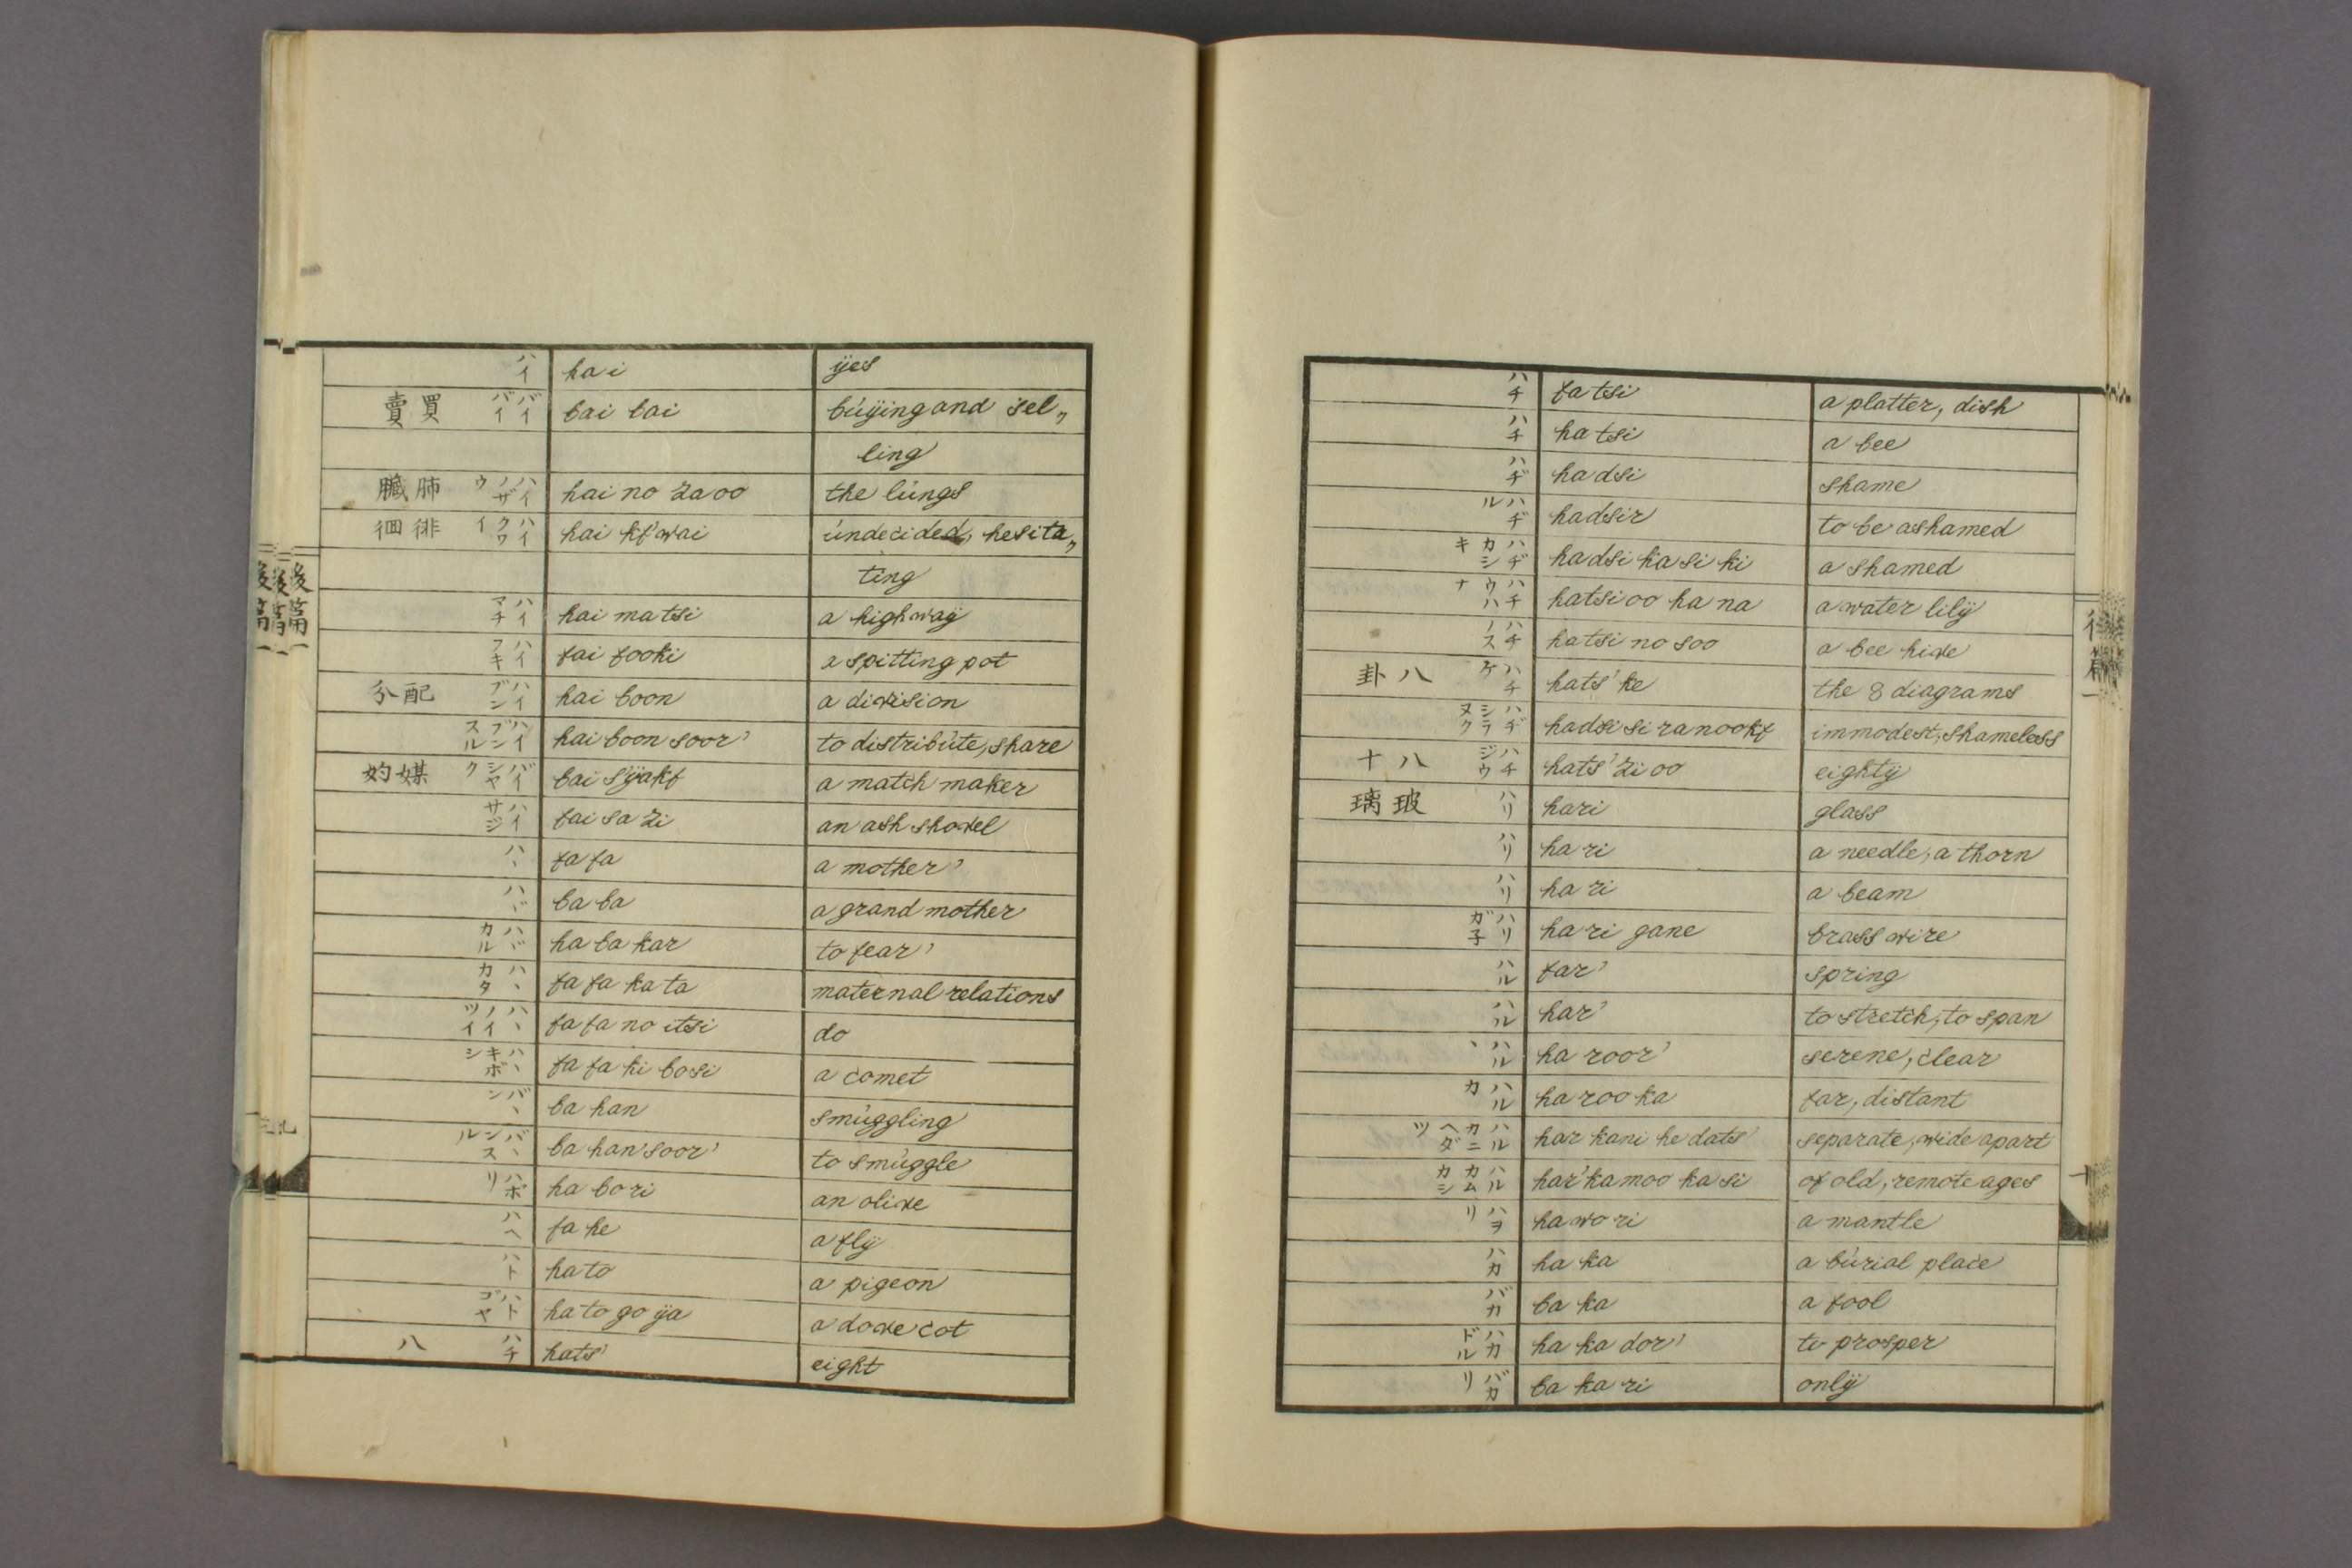 ハイ hai yes
賣買 バイバイ bai bai buÿing and sel„
ling
臟肺 ハイノザウ hai no zaoo the lungs
徊徘 ハイクワイ hai kf'wai undecided, hesita„
ting
ハイマチ hai matsi a highwaÿ
ハイフキ fai fooki a spitting pot
分配 ハイブン hai boon a division
ハイブンスル hai boon soor' to distribute, share
妁媒 バイシヤク bai s'ÿakf a match maker
ハイサジ fai sa zi an ash shovel
ハヽ fa fa a mother
ハヾ ba ba a grand mother
ハヾカル ha ba kar to fear
ハヽカタ fa fa ka ta maternal relations
ハヽノイツイ fa fa no itsi do
ハヽキボシ fa fa ki bosi a comet
バヽン ba han smuggling
バヽンスル ba han soor' to smuggle
ハボリ ha bo ri an olive
ハヘ fa he a flÿ
ハト ha to a pigeon
ハトゴヤ ha to go ÿa a dove cot
八 ハチ hats' eight
後篇一
後篇一
後篇一
ハチ fa tsi a platter, dish
ハチ ha tsi a bee
ハヂ ha dsi shame
ハヂル hadsir to be ashamed
ハヂカシキ hadsi ka si ki a shamed
ハチウハナ hatsi oo ha na a water lilÿ
ハチノス ha tsi no soo a bee hive
卦八 ハチケ hats' ke the 8 diagrams
ハヂシラヌク hadsi si ra nookf immodest, shameless
十八 ハチジウ hats' zi oo eightÿ
璃玻 ハリ hari glass
ハリ ha ri a needle, a thorn
ハリ ha ri a beam
ハリガ子 ha ri gane brass wire
ハル far' spring
ハル har' to stretch, to span
ハルヽ ha roor' serene, clear
ハルカ ha roo ka far, distant
ハルカニヘダツ har kani he dats' separate, wide apart
ハルカムカシ har' ka moo ka si of old, remote ages
ハヲリ ha wo ri a mantle
ハカ ha ka a burial place
バカ ba ka a fool
ハカドル ha ka dor' to prosper
バカリ ba ka ri onlÿ
十